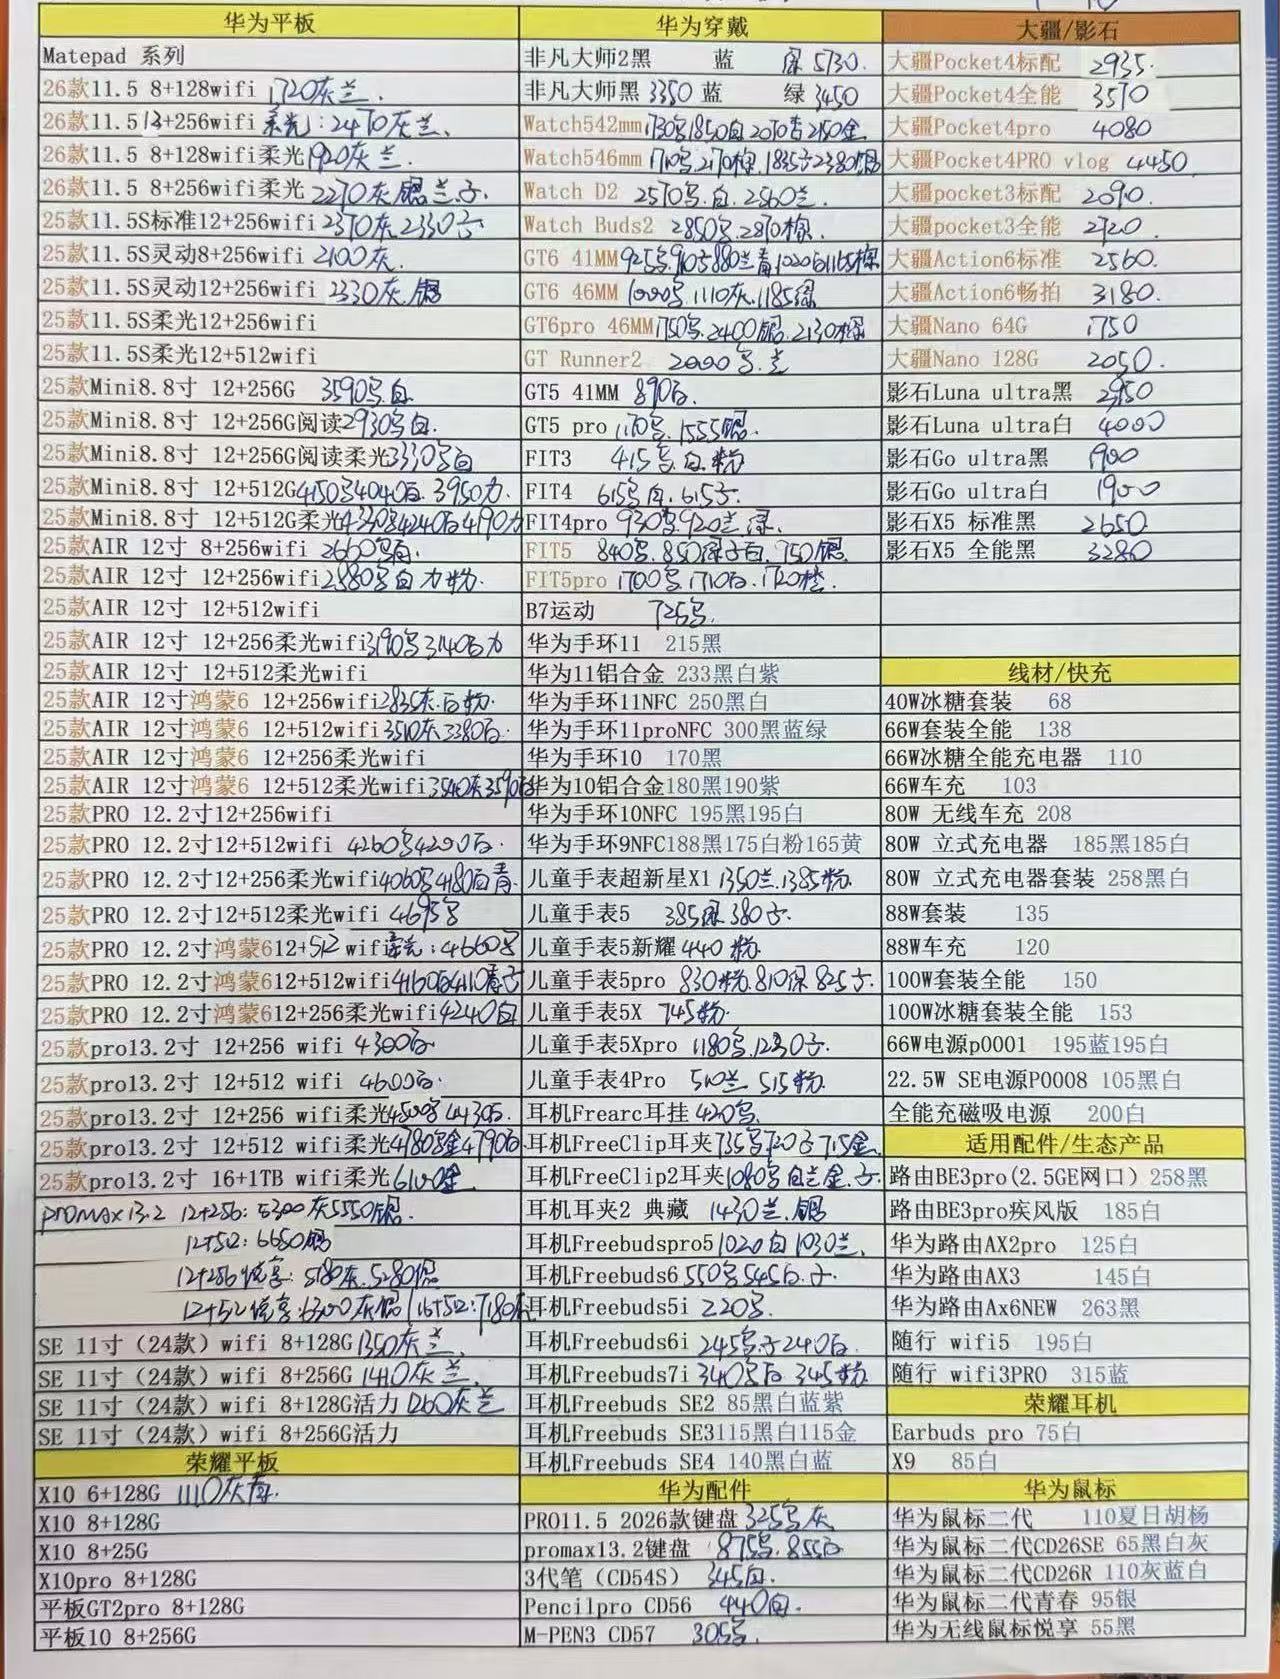 华为平板
Matepad 系列
26款11.5 8+128wifi 1720灰兰.
26款11.5 12+256wifi 柔光:2470灰兰、
26款11.5 8+128wifi柔光1920灰兰.
26款11.5 8+256wifi柔光 2270灰银兰.子.
25款11.5S标准12+256wifi 2370灰2330子
25款11.5S灵动8+256wifi 2100灰.
25款11.5S灵动12+256wifi 2330灰.银
25款11.5S柔光12+256wifi
25款11.5S柔光12+512wifi
25款Mini8.8寸 12+256G 3590写.白.
25款Mini8.8寸 12+256G阅读2930写白.
25款Mini8.8寸 12+256G阅读柔光3330写白
25款Mini8.8寸 12+512G4150写4040白.3950力.
25款Mini8.8寸 12+512G柔光4330写4240白4190力
25款AIR 12寸 8+256wifi 2660写白.
25款AIR 12寸 12+256wifi2880写白力粉.
25款AIR 12寸 12+512wifi
25款AIR 12寸 12+256柔光wifi3190写3140白力
25款AIR 12寸 12+512柔光wifi
25款AIR 12寸鸿蒙6 12+256wifi2835灰.白粉.
25款AIR 12寸鸿蒙6 12+512wifi3510灰3380白.
25款AIR 12寸鸿蒙6 12+256柔光wifi
25款AIR 12寸鸿蒙6 12+512柔光wifi3540灰3590白
25款PRO 12.2寸12+256wifi
25款PRO 12.2寸12+512wifi 4260写4200白.
25款PRO 12.2寸12+256柔光wifi4060写4180白青.
25款PRO 12.2寸12+512柔光wifi 4695写
25款PRO 12.2寸鸿蒙612+512 wifi柔光:4660写
25款PRO 12.2寸鸿蒙612+512wifi4160白4110青子
25款PRO 12.2寸鸿蒙612+256柔光wifi4240白
25款pro13.2寸 12+256 wifi 4300白.
25款pro13.2寸 12+512 wifi 4600白.
25款pro13.2寸 12+256 wifi柔光4500写4430白.
25款pro13.2寸 12+512 wifi柔光4780写金4790白
25款pro13.2寸 16+1TB wifi柔光6100金
promax13.2 12+256:5300灰5550银.
12+512:6650银
12+256悦享:5180灰.5280银
12+512悦享:6300灰银 16+512:7180灰
SE 11寸(24款)wifi 8+128G1350灰兰、
SE 11寸(24款)wifi 8+256G1440灰兰.
SE 11寸(24款)wifi 8+128G活力1260灰兰
SE 11寸(24款)wifi 8+256G活力
荣耀平板
X10 6+128G 1110灰青.
X10 8+128G
X10 8+25G
X10pro 8+128G
平板GT2pro 8+128G
平板10 8+256G
华为穿戴
非凡大师2黑 蓝 绿5730.
非凡大师黑3350蓝 绿3450
Watch542mm1730写1850白2070杏2150金
Watch546mm1710写.2170棕.1835子2380银
Watch D2 2570写.白.2560兰.
Watch Buds2 2850写.2870棕.
GT6 41MM925写.910子880兰青1020白1165棕
GT6 46MM 1000写.1110灰.1185绿
GT6pro 46MM1750写.2400银.2130棕
GT Runner2 2000写.兰
GT5 41MM 890白.
GT5 pro 1170写.1555银.
FIT3 415写.白.粉
FIT4 615写白.615子.
FIT4pro 930写920兰.绿.
FIT5 840写.850绿子白.750银
FIT5pro 1700写1710白.1720橙.
B7运动 725写.
华为手环11 215黑
华为11铝合金 233黑白紫
华为手环11NFC 250黑白
华为手环11proNFC 300黑蓝绿
华为手环10 170黑
华为10铝合金180黑190紫
华为手环10NFC 195黑195白
华为手环9NFC188黑175白粉165黄
儿童手表超新星X1 1350兰.1385粉.
儿童手表5 385绿380子.
儿童手表5新耀440粉.
儿童手表5pro 830粉.810绿825子.
儿童手表5X 745粉.
儿童手表5Xpro 1180写.1230子.
儿童手表4Pro 510兰 515粉.
耳机Frearc耳挂420写.
耳机FreeClip耳夹735写720子715金.
耳机FreeClip2耳夹1080写白兰金.子.
耳机耳夹2 典藏 1430兰.银
耳机Freebudspro51020白1030兰.
耳机Freebuds6 550写545白.子.
耳机Freebuds5i 220写.
耳机Freebuds6i 245写子240白.
耳机Freebuds7i 340写白 345粉
耳机Freebuds SE2 85黑白蓝紫
耳机Freebuds SE3115黑白115金
耳机Freebuds SE4 140黑白蓝
华为配件
PRO11.5 2026款键盘 325写灰
promax13.2键盘 875写.855白
3代笔(CD54S) 345白.
Pencilpro CD56 440白.
M-PEN3 CD57 305写.
大疆/影石
大疆Pocket4标配 2935.
大疆Pocket4全能 3570
大疆Pocket4pro 4080
大疆Pocket4PRO vlog 4450
大疆pocket3标配 2090.
大疆pocket3全能 2720.
大疆Action6标准 2560.
大疆Action6畅拍 3180.
大疆Nano 64G 1750
大疆Nano 128G 2050.
影石Luna ultra黑
影石Luna ultra白 4000
影石Go ultra黑 1900
影石Go ultra白 1900
影石X5 标准黑 2650
影石X5 全能黑 3280
线材/快充
40W冰糖套装 68
66W套装全能 138
66W冰糖全能充电器 110
66W车充 103
80W 无线车充 208
80W 立式充电器 185黑185白
80W 立式充电器套装 258黑白
88W套装 135
88W车充 120
100W套装全能 150
100W冰糖套装全能 153
66W电源p0001 195蓝195白
22.5W SE电源P0008 105黑白
全能充磁吸电源 200白
适用配件/生态产品
路由BE3pro(2.5GE网口)258黑
路由BE3pro疾风版 185白
华为路由AX2pro 125白
华为路由AX3 145白
华为路由Ax6NEW 263黑
随行 wifi5 195白
随行 wifi3PRO 315蓝
荣耀耳机
Earbuds pro 75白
X9 85白
华为鼠标
华为鼠标二代 110夏日胡杨
华为鼠标二代CD26SE 65黑白灰
华为鼠标二代CD26R 110灰蓝白
华为鼠标二代青春 95银
华为无线鼠标悦享 55黑